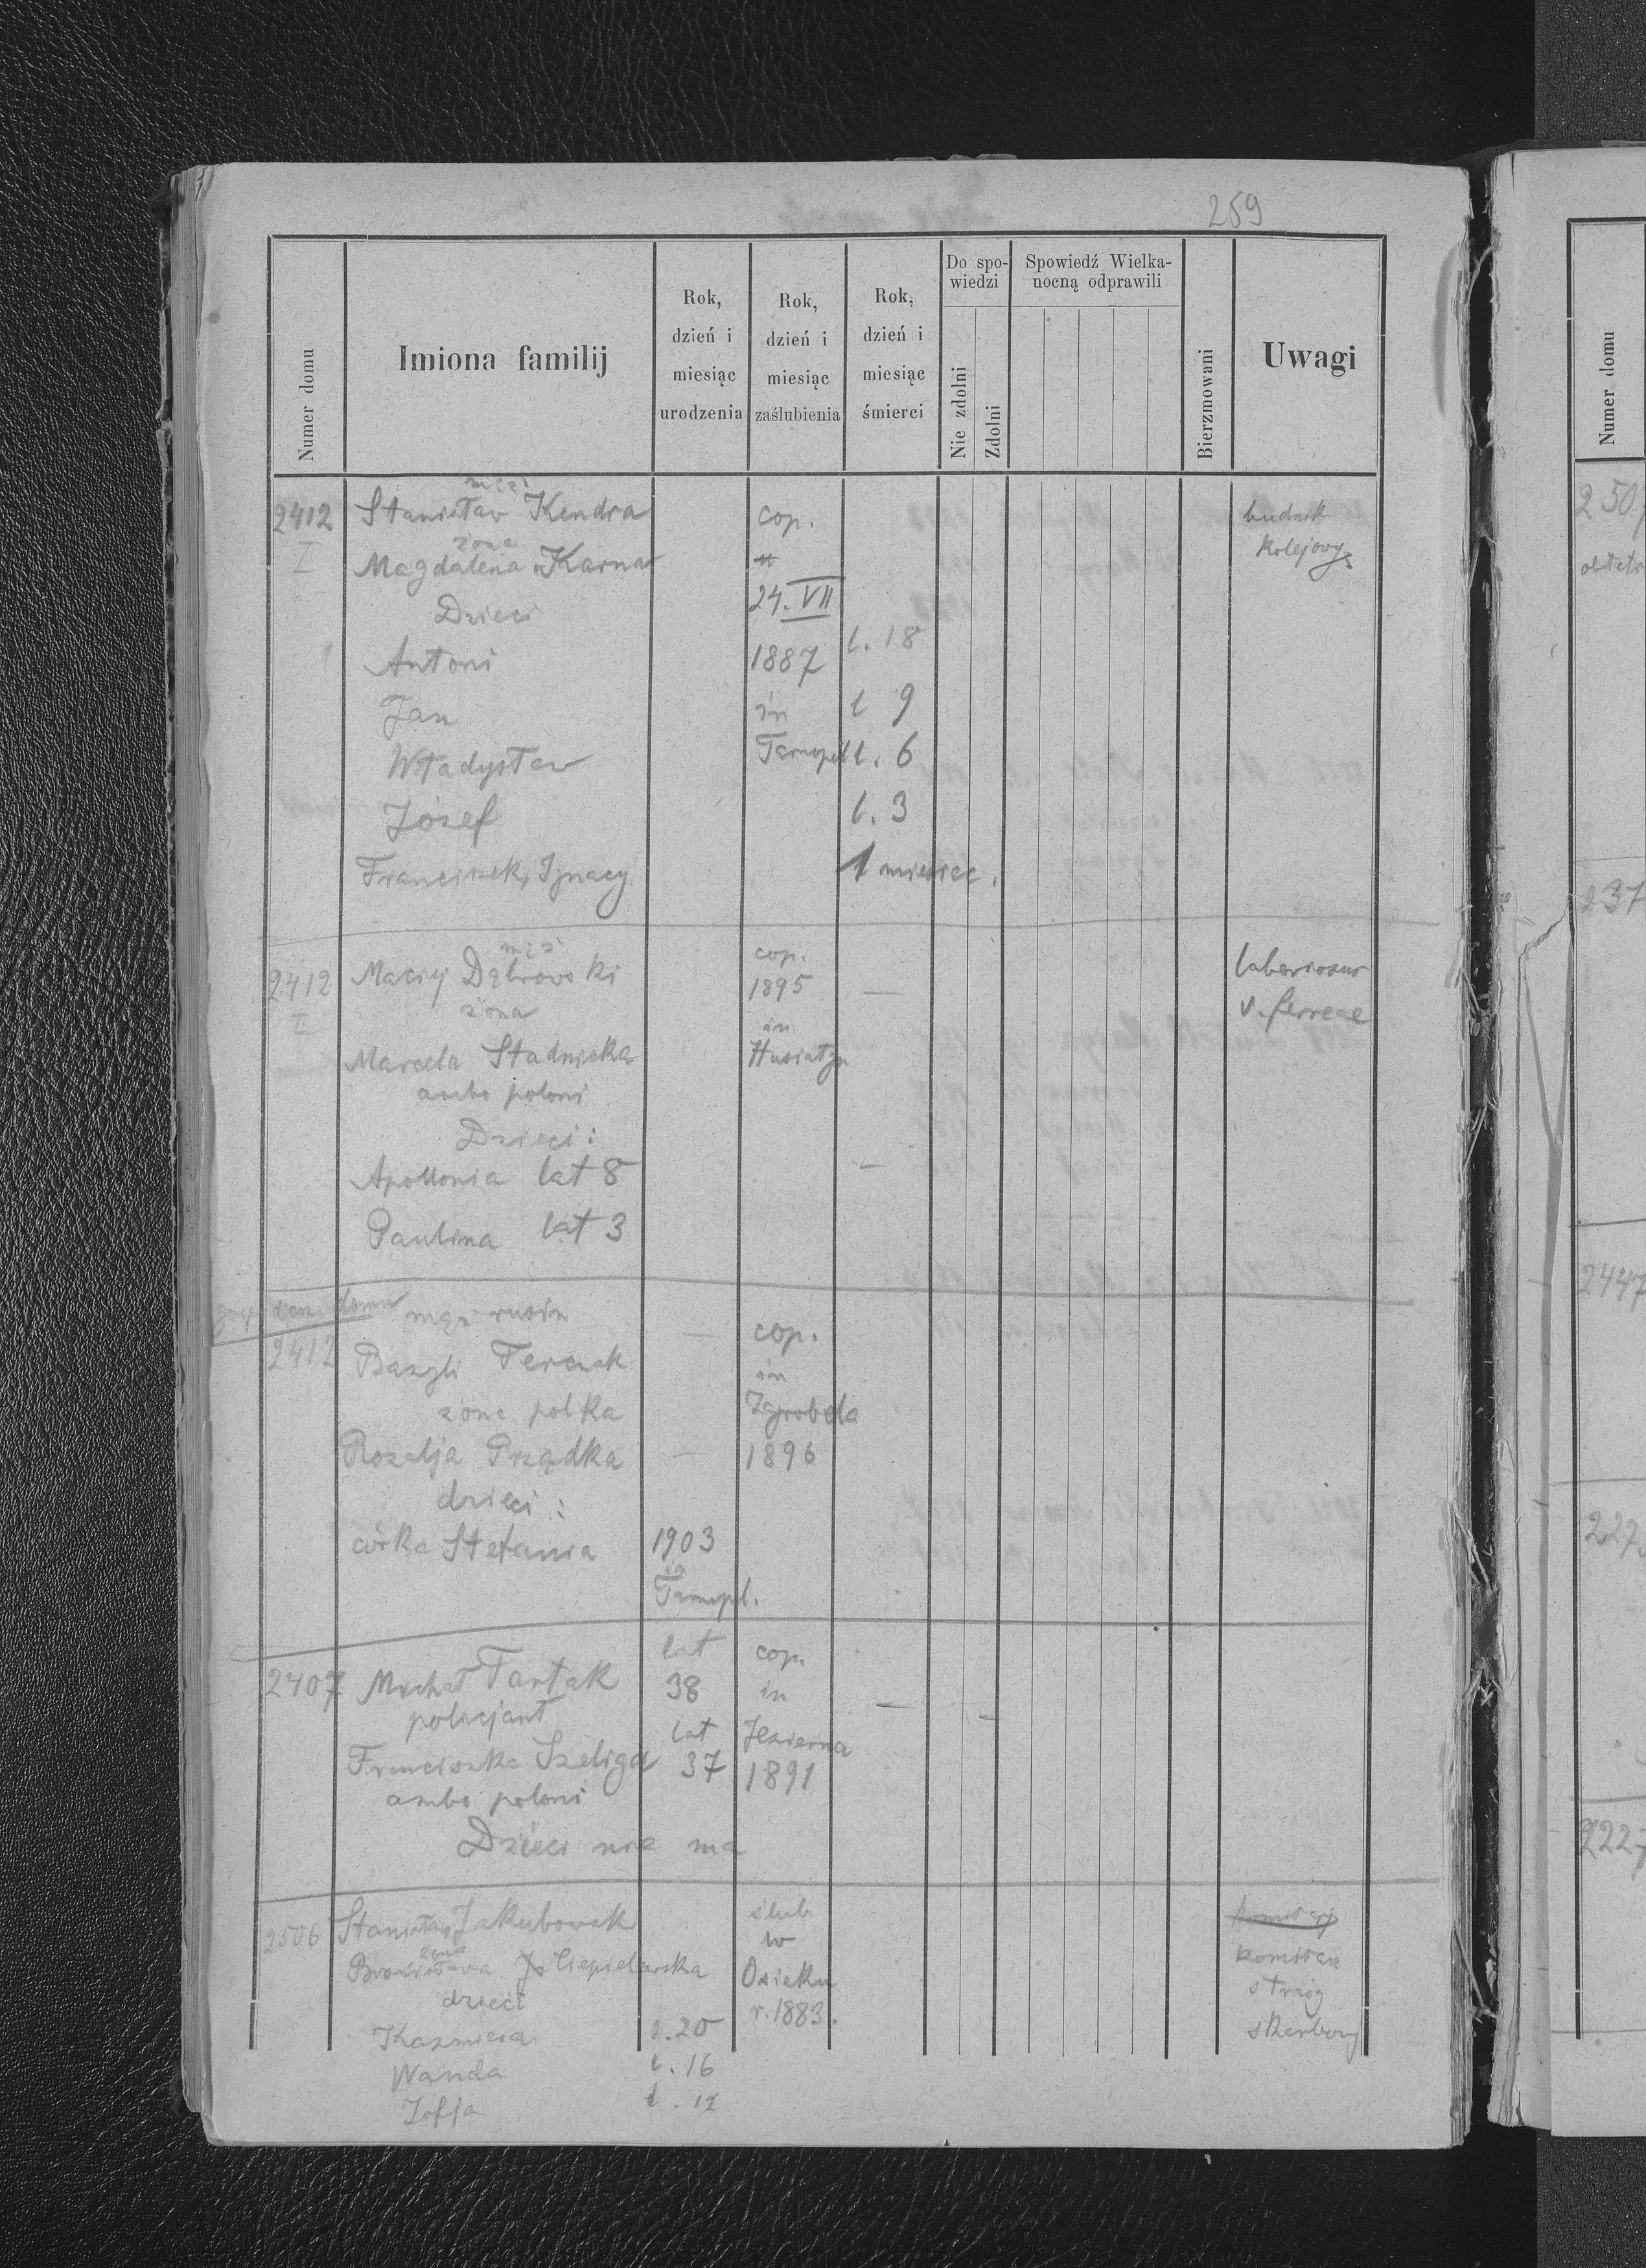 259
Numer domu
Imiona familij
Rok, dzień i miesiąc urodzenia
Rok, dzień i miesiąc zaślubienia
Rok, dzień i miesiąc śmierci
Do spo-
wiedzi
Nie zdolni
Zdolni
Spowiedź Wielka-
nocną odprawili
Bierzmowani
Uwagi
mąż
2412 Stanisław Kendra cop. budnik
żona
I Magdalena Karna kolejowy
Dzieci 24. VII
Antoni 1887 l. 18
Jan in l 9
Władysław Tarnopol l. 6
Józef l. 3
Franciszek, Ignacy 1 miesiec.
mąż cop.
2412 Maciej Dąbrowski 1895 — laboriosus
II żona in v. ferreae
Marcela Stadnicka Husiatyn
ambo poloni
Dzieci :
Apollonia lat 8 —
Paulina lat 3
domu mąż rusin — cop.
2412 Bazyli Terczak in
żona polka Zagrobela
Rozalja Prządka — 1896
dzieci :
córka Stefania 1903
in
Tarnopl.
lat cop.
2407 Michał Tartak 38 in —
policjant lat Jezierna
Franciszka Szeliga 37 1891
ambo poloni
Dzieci nie ma
2506 Stanisław Jakubowski ślub
żona w
Bronisława Ciepielowska Osieku komisarz
dzieci r. 1883. straży
Kazmiera l. 20 skarbowej
Wanda l. 16
Zofja l. 12
Numer domu
250
237
2447
227
222